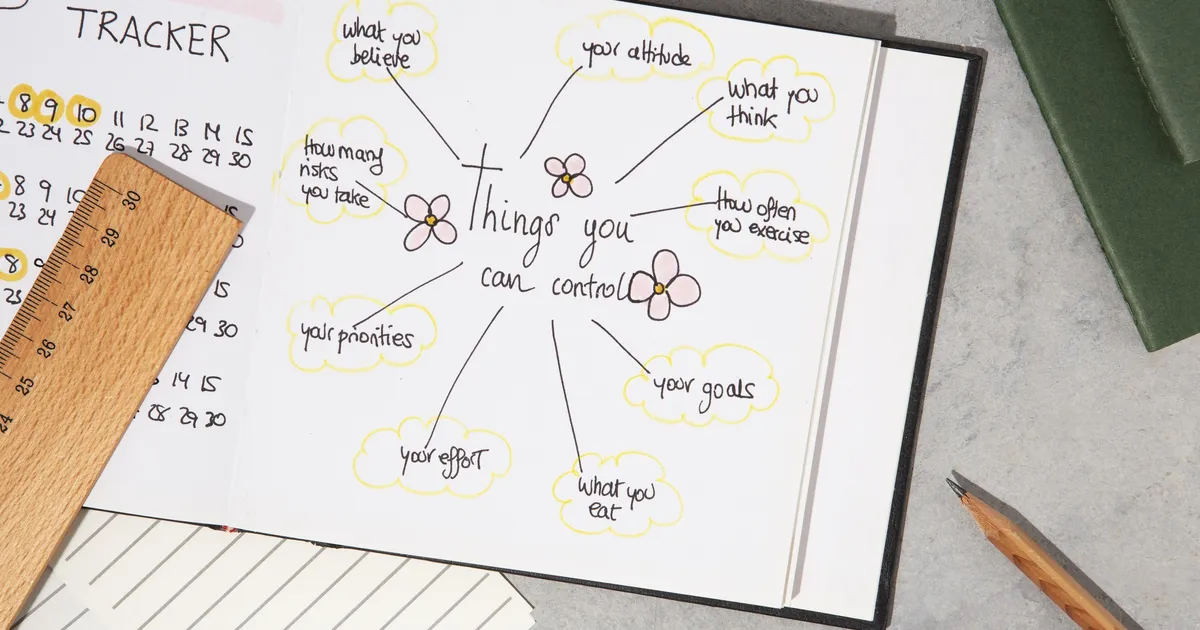 TRACKER
8 9 10 11 12 13 14 15
23 24 25 26 27 28 29 30
8 9
23 24
15
8
23
15
29 30
14 15
28 29 30
30
29
28
27
26
25
24
what you
believe
your attitude
what you
think
How many
risks
you take
How often
you exercise
Things you
can control
your priorities
your goals
your effort
what you
eat